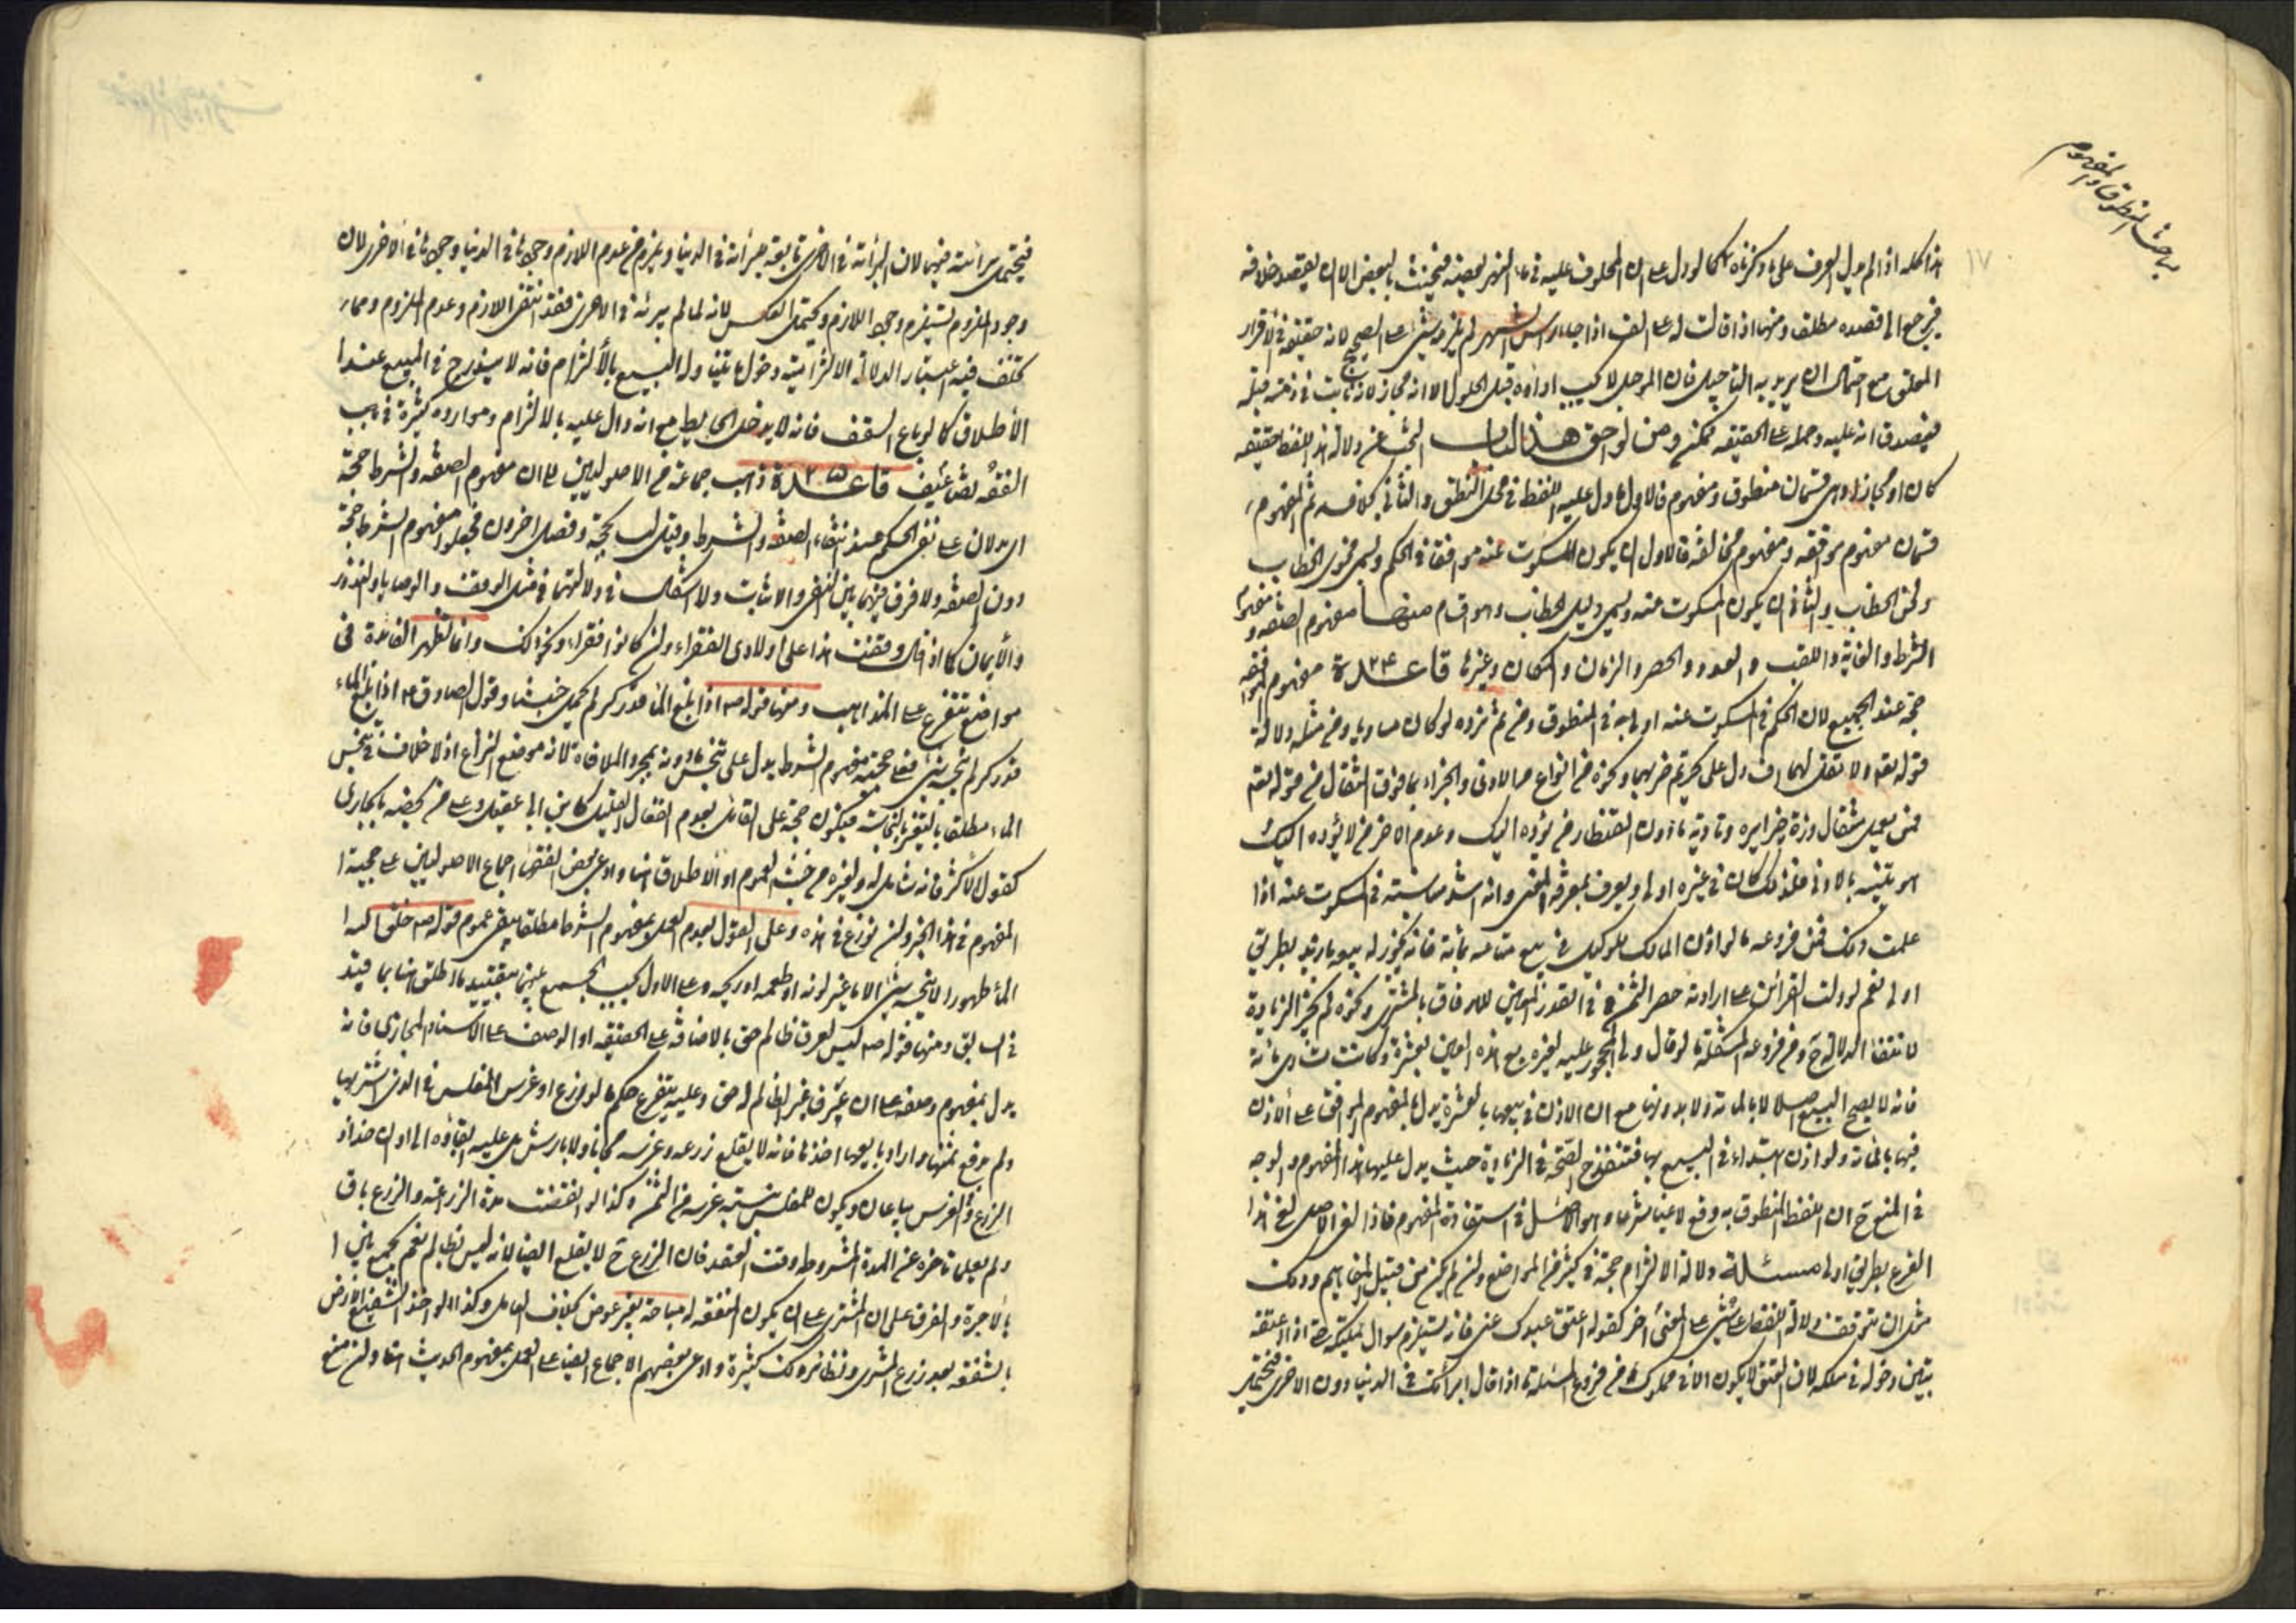 مباحث المنطوق والمفهوم
١٧
هذا كله اذا لم يدل العرف على ما ذكرناه كما لو دل على ان المحلوف عليه في ماء النهر بعضه فيحنث بالبعض الا ان يقصد خلافه
فيرجع الى قصده مطلقا ومنها اذا قال له على الف اذا جاء راس الشهر لم يلزمه شئ على الصحيح لانه حقيقة في الاقرار
المعلق مع احتمال ان يريد به التاجيل فان المؤجل لا يجب اداؤه قبل الحلول الا انه مجاز لانه ثابت في ذمته قبله
فيصدق انه عليه وحمله على الحقيقة ممكن ومن لواحق هذا الباب البحث عن دلالة هذا اللفظ حقيقة
كان او مجازا وهي قسمان منطوق ومفهوم فالاول ما دل عليه اللفظ في محل النطق والثاني بخلافه ثم المفهوم
قسمان مفهوم موافقه ومفهوم مخالفه فالاول ان يكون المسكوت عنه موافقا في الحكم ويسمى فحوى الخطاب
ولحن الخطاب والثاني ان يكون المسكوت عنه ويسمى دليل الخطاب وهو اقسام منها مفهوم الصفه ومفهوم
الشرط والغاية واللقب والعدد والحصر والزمان والمكان وغيرها قاعدة ٢٤ مفهوم الموافقه
حجة عند الجميع لان الحكم في المسكوت عنه اولى به في المنطوق ومن ثم نزده لو كان مساويا ومن مثله دلالة
قوله تعه ولا تقل لهما اف دل على تحريم ضربهما ونحوه من انواع الاذى والجزاء بما فوق المثقال من قوله تعه
فمن يعمل مثقال ذرة خيرا يره وتادية ما دون القنطار من يؤده اليك وعدم الاخر من لا يؤده اليك
هو تنبيه بالادنى فلذلك كان في غيره اولى ويعرف بمعرفة المعنى وانه اشد مناسبة في المسكوت عنه اذا
علمت ذلك فمن فروعه ما لو اذن المالك للوكيل في بيع متاعه بمائة فانه يجوز له بيعه بازيد بطريق
اولى نعم لو دلت القرائن على ارادته حصر الثمن في القدر المعين للارفاق بالمشترى ونحوه لم يجز الزيادة
لانتفاء الدلالة ح ومن فروعه المشكلة ما لو قال ولي المحجور عليه لغيره بع هذه العين بعشرة وكانت تساوى مائة
فانه لا يصح البيع اصلا لا بالمائة ولا بدونها مع ان الاذن في بيعها بالعشرة يدل بالمفهوم الموافق على الاذن
فيها بالمائة ولو اذن ابتداء في البيع بها فتنقدح الصحة في الزيادة حيث يدل عليها هذا المفهوم والوجه
في المنع ح ان اللفظ المنطوق به وقع لاغيا شرعا وهو الاصل في استفادة المفهوم فاذا لغى الاصل لغى هذا
الفرع بطريق اولى مسئلة دلالة الالتزام حجة في كثير من المواضع وان لم يكن من قبيل المفاهيم وذلك
مثل ان تتوقف دلالة اللفظ على شئ على المعنى اخر كقوله اعتق عبدك عنى فانه يستلزم سوال تمليكه حتى اذا اعتقه
تبين دخوله في ملكه لان العتق لا يكون الا في مملوك ومن فروع المسئلة ما اذا قال ابراتك في الدنيا دون الاخرى فيحتمل
فيحتمل براءته فيهما لان البراءة في الاخرى تابعة لبراءته في الدنيا ويلزم من عدم اللازم وجودها في الدنيا وجودها في الاخرى لان
وجود الملزوم يستلزم وجود اللازم ويحتمل العكس لانه لما لم يبرئه في الاخرى فقد انتفى اللازم وعدم الملزوم ومما
تخلف فيه اعتبار الدلالة الالتزامية دخول ما يتناوله البيع بالالتزام فانه لا يندرج في المبيع عند
الاطلاق كما لو باع السقف فانه لا يدخل الحايط مع انه دال عليه بالالتزام وموارده كثيرة في باب
الفقه بضاعيف قاعدة ٢٥ ذهب جماعة من الاصوليين الى ان مفهوم الصفه والشرط حجة
اى يدلان على نفى الحكم عند انتفاء الصفه والشرط وقيل ليسا بحجة وفصل اخرون فجعلوا مفهوم الشرط حجة
دون الصفه ولا فرق فيهما بين النفى والاثبات ولا اشكال في دلالتهما في مثل الوقف والوصايا والنذور
والايمان كما اذا قال وقفت هذا على اولادى الفقراء وان كانوا فقراء ونحو ذلك وانما تظهر الفائدة في
مواضع تتفرع على المذاهب ومنها قوله ص اذا بلغ الماء قدر كر لم يحمل خبثا وقول الصادق ع اذا بلغ الماء
قدر كر لم ينجسه شئ فعلى حجية مفهوم الشرط يدل على تنجس ما دونه بمجرد الملاقاة لانه موضع النزاع اذ لا خلاف في تنجس
الماء مطلقا بالتغير بالنجاسة فيكون حجة على القائل بعدم انفعال القليل كابن ابى عقيل وعلى من يخصه بالجارى
كقول الاكثر فانه شامل له ولغيره من حيث العموم او الاطلاق ايضا وادعى بعض الفقهاء اجماع الاصوليين على حجية
المفهوم في هذا الخبر وان نوزع في غيره وعلى القول بعدم العمل بمفهوم الشرط مطلقا يبقى عموم قوله ص خلق الله
الماء طهورا لا ينجسه شئ الا ما غير لونه او طعمه او ريحه وعلى الاول يجب الجمع بينهما بتقييد ما اطلق ايضا بما قيد
في السابق ومنها قوله ص ليس لعرق ظالم حق بالاضافة على الحقيقة او الوصف على الاسناد المجازى فانه
يدل بمفهوم وصفه على ان عرق غير الظالم له حق وعليه يتفرع حكم ما لو زرع او غرس المفلس في الارض التى اشتريها
ولم يدفع ثمنها واراد بايعها اخذها فانه لا يقلع زرعه وغرسه مجانا ولا بارش بل عليه ابقاؤه الى اوان جذاذ
الزرع والغرس يباعان ويكون للمفلس بنسبة غرسه من الثمن وكذا لو انقضت مدة الزراعة والزرع باق
ولم يعلم تاخره عن المدة المشروطة وقت العقد فان الزرع ح لا يقلع ايضا لانه ليس بظالم نعم يجمع بينهما
بالاجرة والفرق على ان المشترى على ان يكون المنفعة له مباحة بغير عوض بخلاف العامل وكذا لو اخذ الشفيع الارض
بالشفعه بعد زرع المشترى ونظائر ذلك كثيرة وادعى بعضهم الاجماع ايضا على العمل بمفهوم الحديث ايضا وان منع